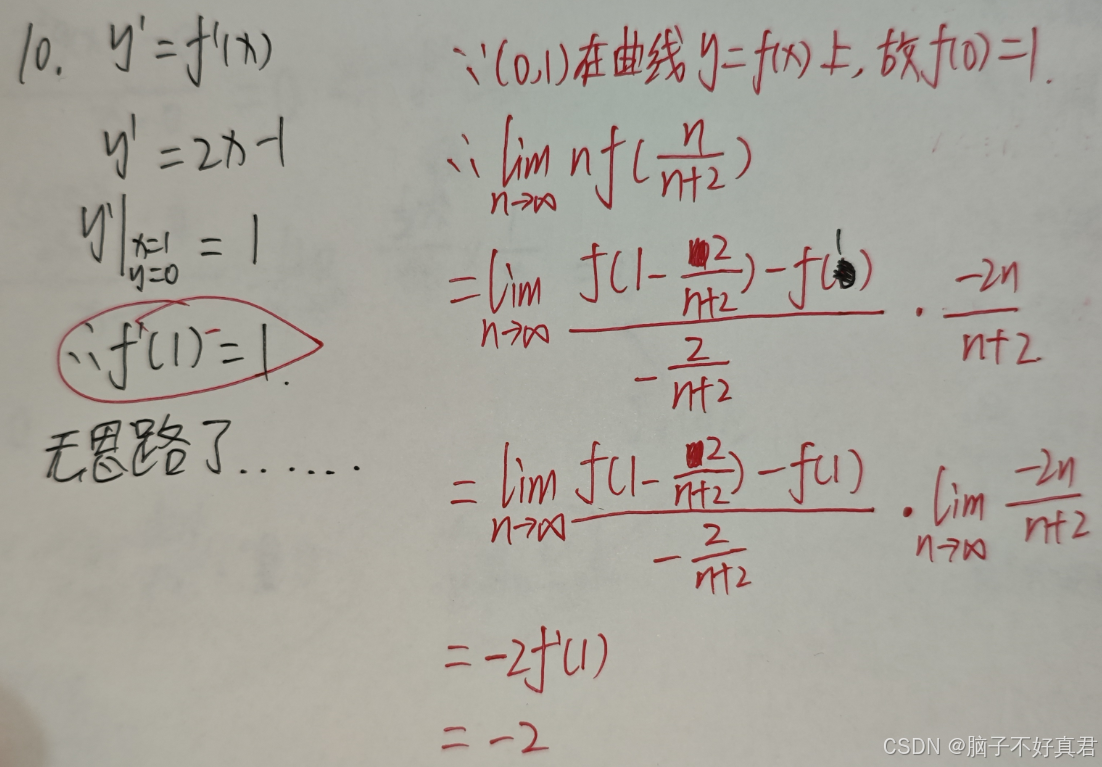 10. y' = f'(x)
y' = 2x-1
y'|x=1 y=0 = 1
∴ f'(1) = 1.
无思路了......
∵(0,1)在曲线y=f(x)上,故f(0)=1.
∴ lim n→∞ n f(n/(n+2))
= lim n→∞ (f(1 - 2/(n+2)) - f(1))/(-2/(n+2)) · (-2n)/(n+2)
= lim n→∞ (f(1 - 2/(n+2)) - f(1))/(-2/(n+2)) · lim n→∞ (-2n)/(n+2)
= -2f'(1)
= -2
CSDN @脑子不好真君